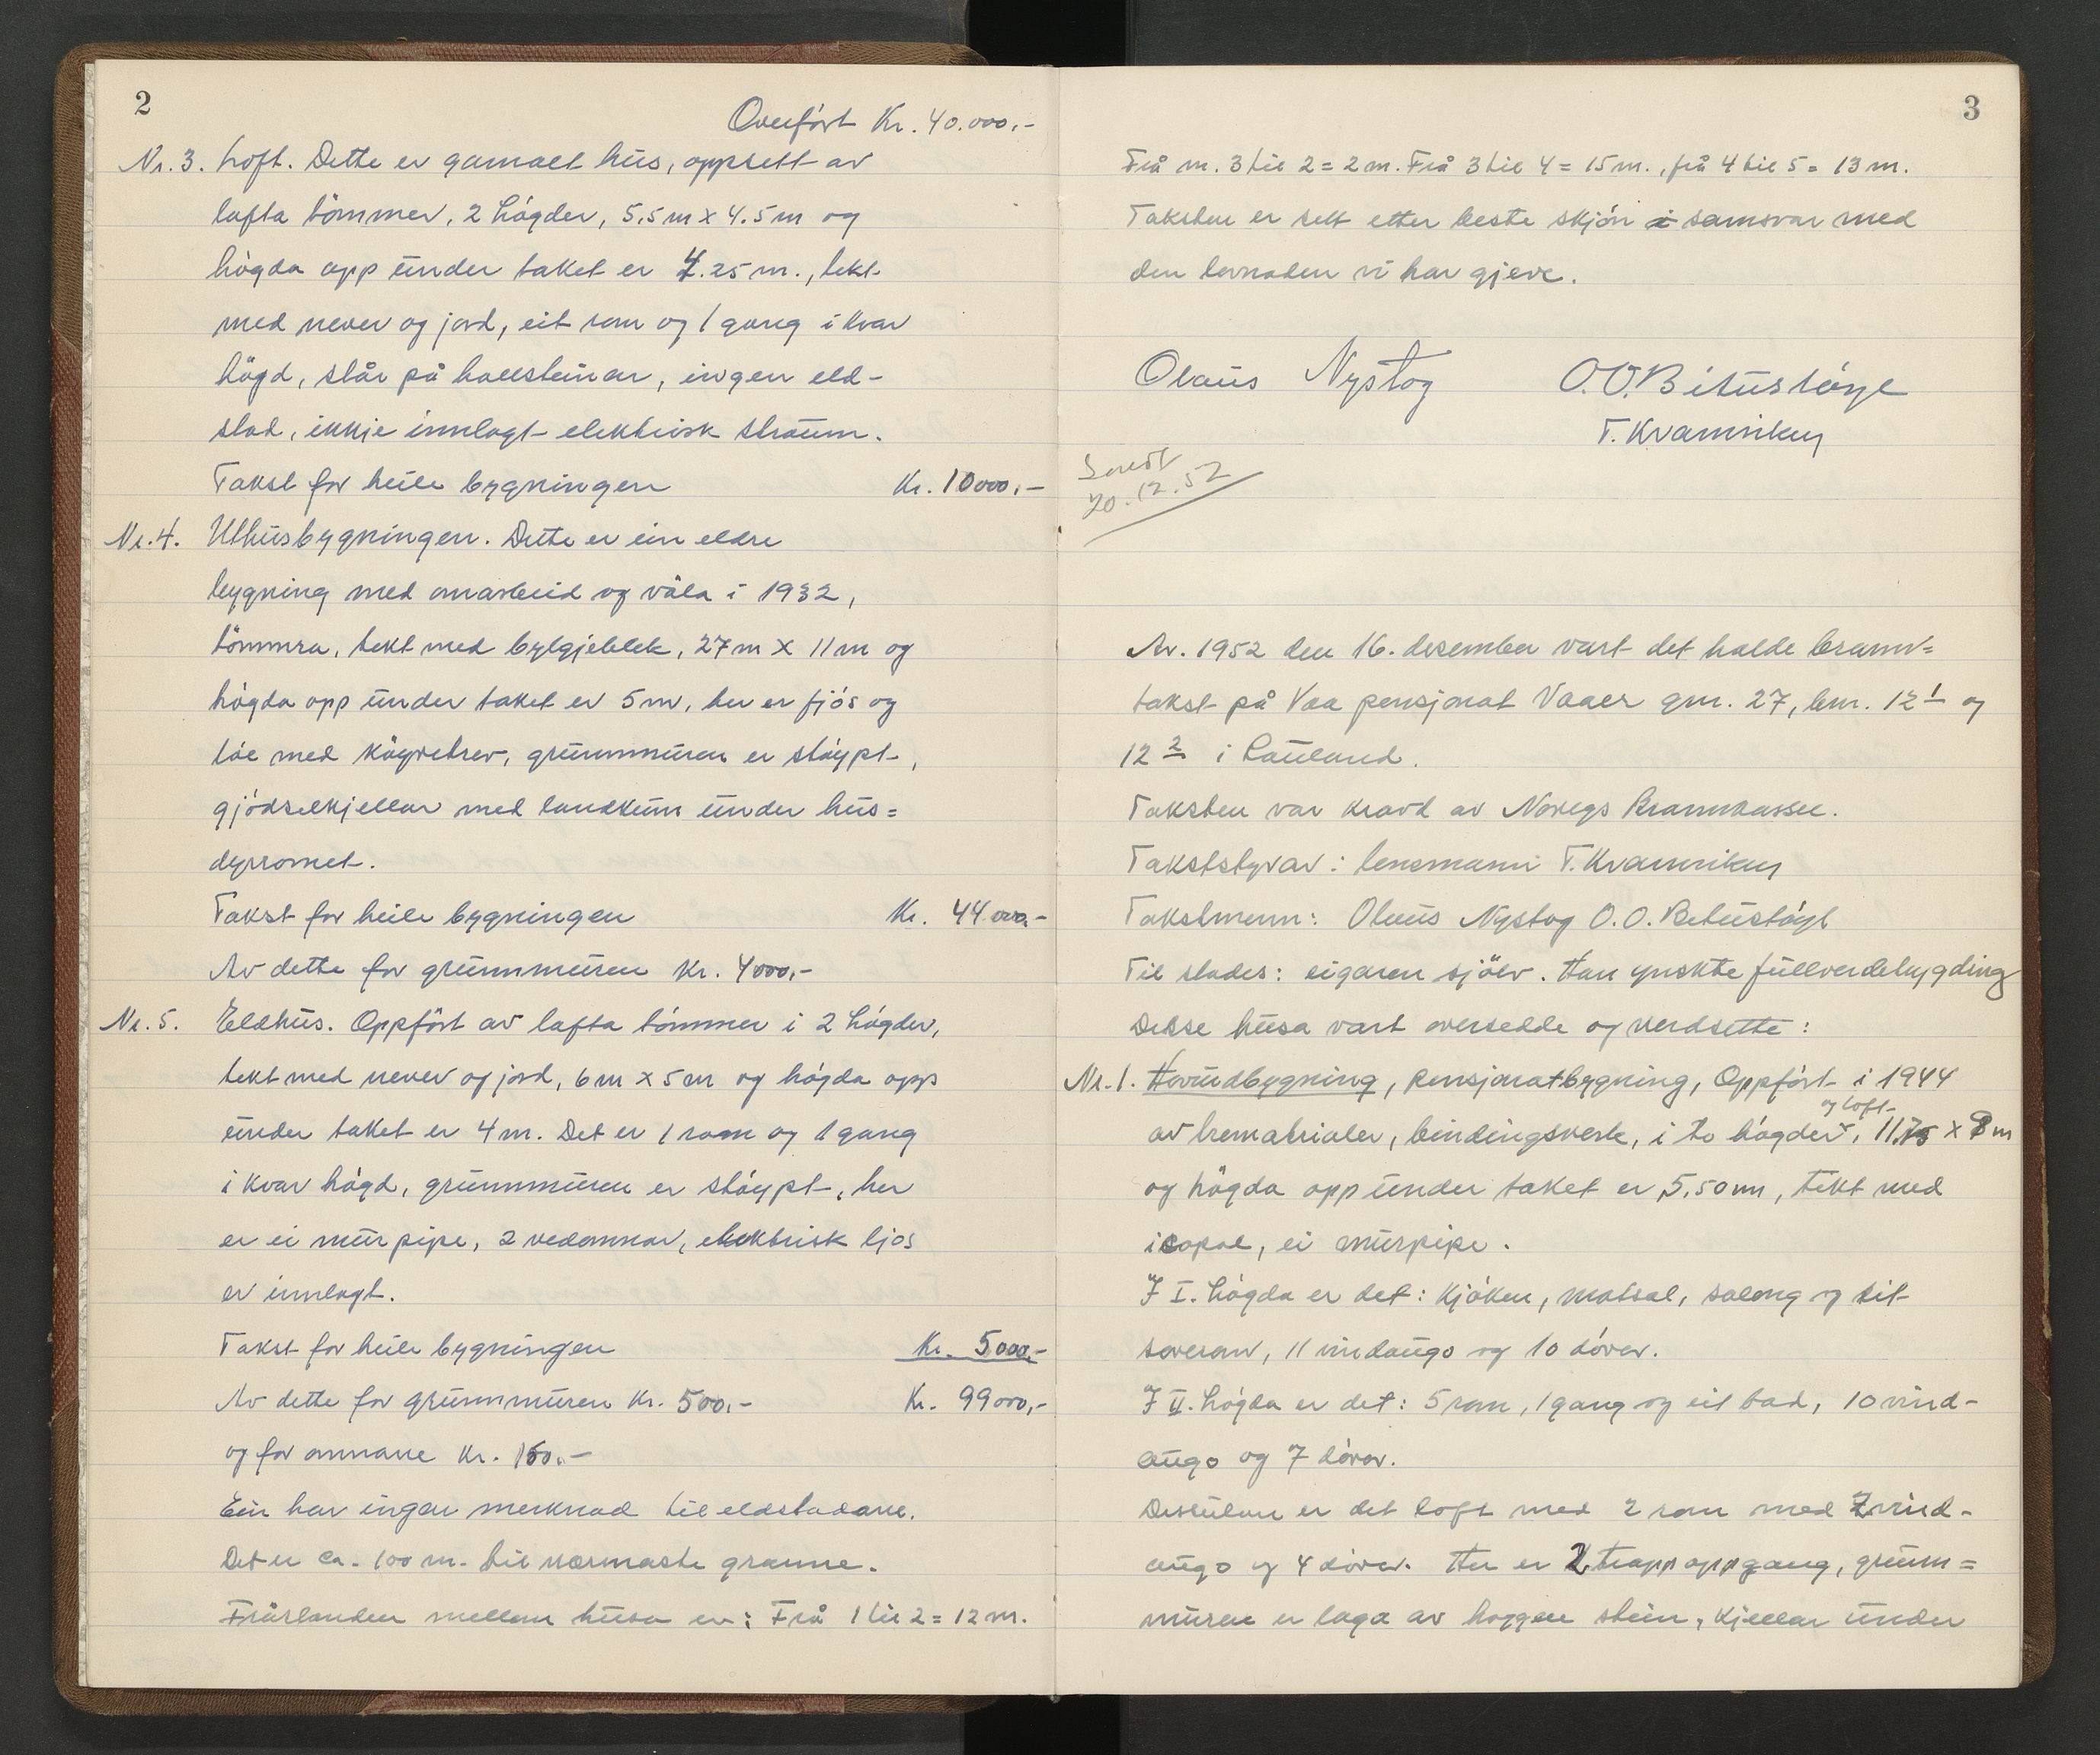 2
Overført Kr. 40.000,-
Nr. 3. Loft. Dette er gamalt hus, oppsett av
lafta tömmer, 2 høgder, 5,5 m x 4.5 m og
høgda opp under taket er 4.25 m., tekt
med never og jord, eit rom og 1 gang i kvar
högd, står på hallsteinar, ingen eld-
stad, ikkje innlagt elektrisk straum.
Takst for heile bygningen Kr. 10000,-
Nr. 4. Uthusbygningen. Dette er ein eldre
bygning med omarbeid og vøla i 1932,
tömmra, tekt med bylgjeblek, 27 m x 11 m og
høgda opp under taket er 5 m, her er fjós og
løe med köyrebrev, grunnmuren er støypt,
gjödselkjellar med landkum under hus=
dyrromet.
Takst for heile bygningen Kr. 44.000,-
Av dette for grunnmuren Kr. 4000,-
Nr. 5. Eldhus. Oppført av lafta tömmer i 2 høgder,
tekt med never og jord, 6 m x 5 m og høgda opp
under taket er 4 m. Det er 1 rom og 1 gang
i kvar høgd, grunnmuren er støypt, her
er ei murpipe, 2 vedomnar, elektrisk ljos
er innlagt.
Takst for heile bygningen Kr. 5000,-
Av dette for grunnmuren Kr. 500,- Kr. 99000,-
og for omnane Kr. 150,-
Ein har ingen merknad til eldstadane.
Det er ca. 100 m. til nærmaste granne.
Fråstanden mellom husa er: Frå 1 til 2 = 12 m.
3
Frå nr. 3 til 2 = 2 m. Frå 3 til 4 = 15 m., frå 4 til 5 = 13 m.
Taksten er sett etter beste skjøn i samsvar med
den lovnaden vi har gjeve.
Olaus Nystog O.O. Bitustøyl
T. Kvamsiken
Sendt
20.12.52
År. 1952 den 16. desember vart det halde brann=
takst på Vaa pensjonat Vaaer gnr. 27, bnr. 12 1 og
12 2 i Rauland.
Taksten var kravd av Noregs Brannkasse.
Takststyrar: lensmann T. Kvamsiken
Takstmenn: Olaus Nystog O.O. Bitustøyl
Til stades: eigaren sjölv. Han ynskte fullverdetrygding
Desse husa vart oversedde og verdsette:
Nr. 1. Hovudbygning, pensjonatbygning, Oppført i 1944
og loft
av trematrialer, bindingsverk, i to høgder, 11,75 x 8 m
og høgda opp under taket er 5,50 m, tekt med
icopal, ei murpipe.
I I. høgda er det: Kjøken, matsal, salong og eit
soverom, 11 vindaugo og 10 dører.
I II. høgda er det: 5 rom, 1 gang og eit bad, 10 vind-
augo og 7 dører.
Dessutan er det loft med 2 rom med 2 vind-
augo og 4 dører. Her er 2 trappoppgang, grunn=
muren er laga av hoggen stein, Kjellar under